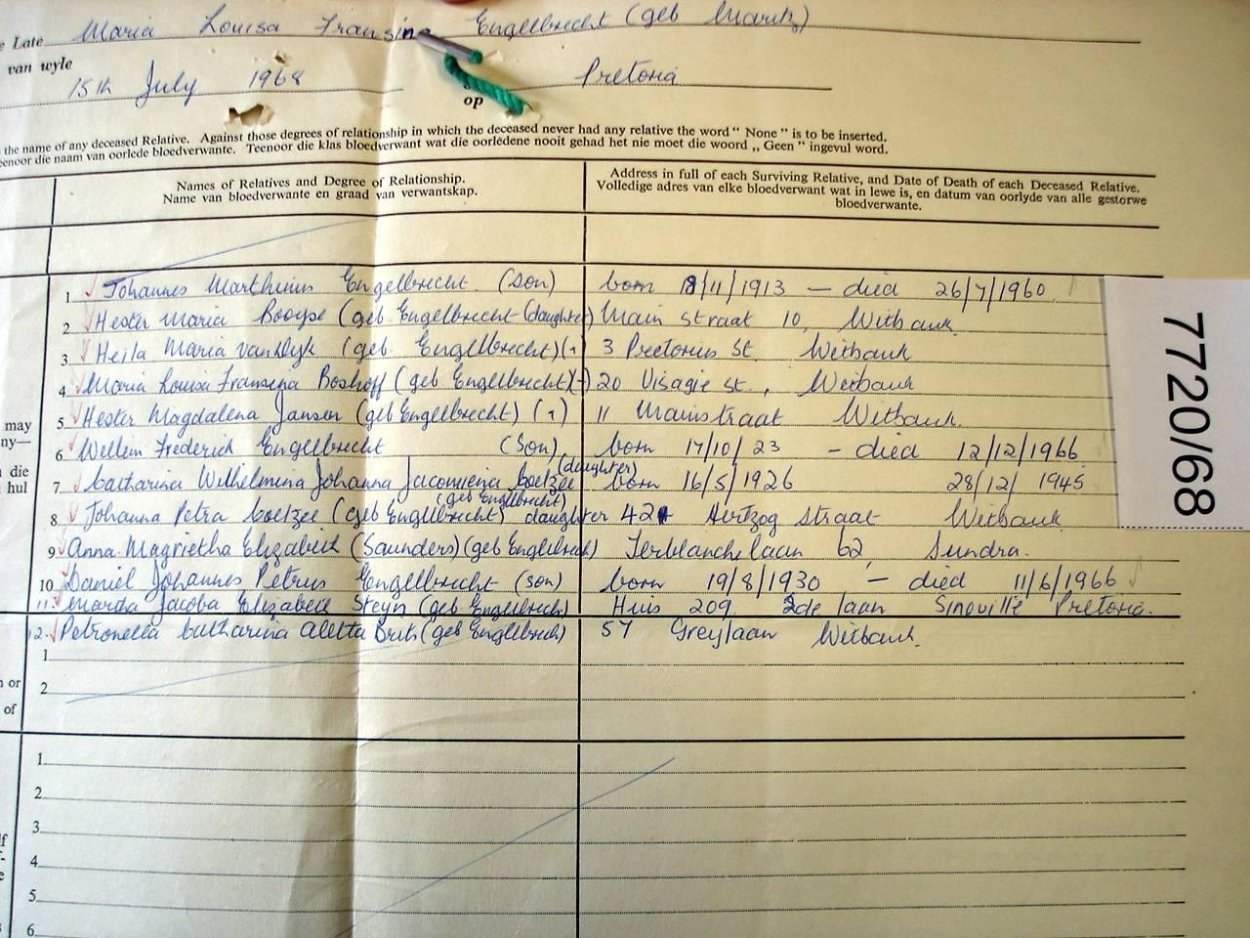 e Late Maria Louisa Fransina Engelbrecht (geb Maritz)
van wyle
15th July 1968 op Pretoria
the name of any deceased Relative. Against those degrees of relationship in which the deceased never had any relative the word " None " is to be inserted.
eenoor die naam van oorlede bloedverwante. Teenoor die klas bloedverwant wat die oorledene nooit gehad het nie moet die woord „ Geen " ingevul word.
Names of Relatives and Degree of Relationship.
Name van bloedverwante en graad van verwantskap.
Address in full of each Surviving Relative, and Date of Death of each Deceased Relative.
Volledige adres van elke bloedverwant wat in lewe is, en datum van oorlyde van alle gestorwe
bloedverwante.
1 Johannes Marthinus Engelbrecht (son) born 18/11/1913 — died 26/7/1960
2 Hester Maria Booyse (geb Engelbrecht (daughter) Main straat 10, Witbank
3 Heila Maria vanDyk (geb. Engelbrecht) (1) 3 Pretorius St. Witbank
4 Maria Louisa Fransina Boshoff (geb Engelbrecht) 20 Visagie st, Witbank
5 Hester Magdalena Jansen (geb Engelbrecht) (1) 11 Mainstraat Witbank.
6 Willem Frederick Engelbrecht (son) born 17/10/23 - died 12/12/1966
(daughter)
7 Catharina Wilhelmina Johanna Jacomina Coetzee born 16/5/1926 28/12/1945
(geb Engelbrecht)
8 Johanna Petra Coetzee (geb Engelbrecht) daughter 42 Hertzog straat Witbank
9 Anna Magrietha Elizabeth (Saunders) (geb Engelbrech) Terblanchelaan 62, Sundra.
10 Daniel Johannes Petrus Engelbrecht (son) born 19/8/1930 — died 11/6/1966
11 Martha Jacoba Elizabeth Steyn (geb Engelbrech) Huis 209. 2de laan Sinoville Pretoria.
12. Petronella Catharina Aletta Brits (geb Engelbrech) 57 Greylaan Witbank.
may
ny—
die
hul
7720/68
1
2
n or
of
1.
2.
3.
4.
5.
6.